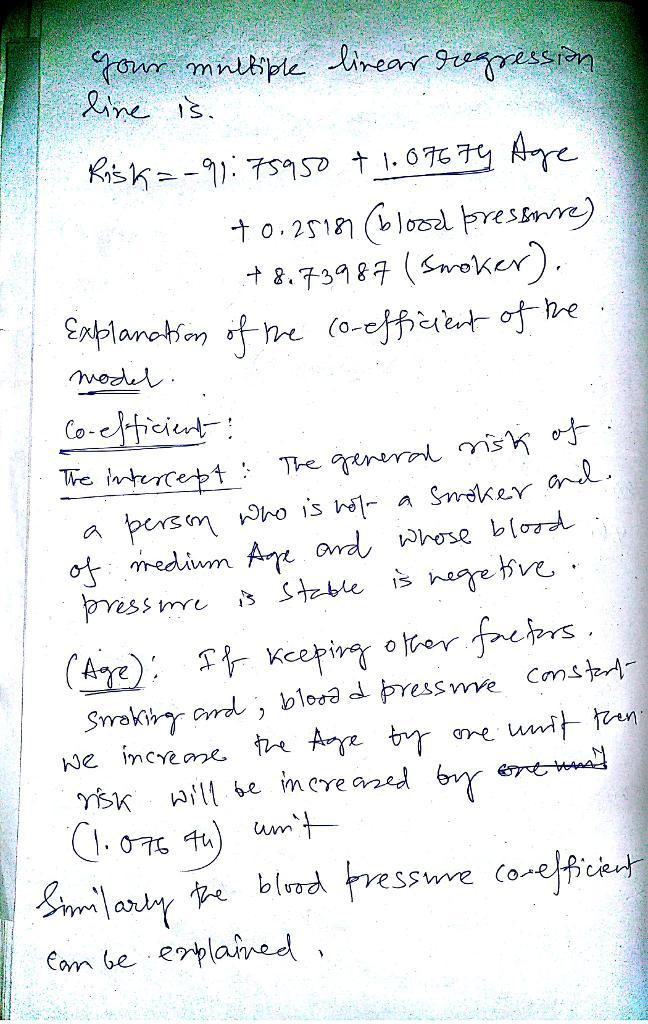 your multiple linear regression
line is.
Risk = -91.75950 + 1.07674 Age
+ 0.25181 (blood pressure)
+ 8.73987 (smoker).
Explanation of the co-efficient of the
model.
Co-efficient:
The intercept: The general risk of
a person who is not a smoker and
of medium Age and whose blood
pressure is stable is negetive.
(Age): If keeping other factors.
smoking and; blood pressure constant
we increase the Age by one unit then
risk will be increased by one unit
(1.07674) unit
Similarly the blood pressure co-efficient
can be explained.